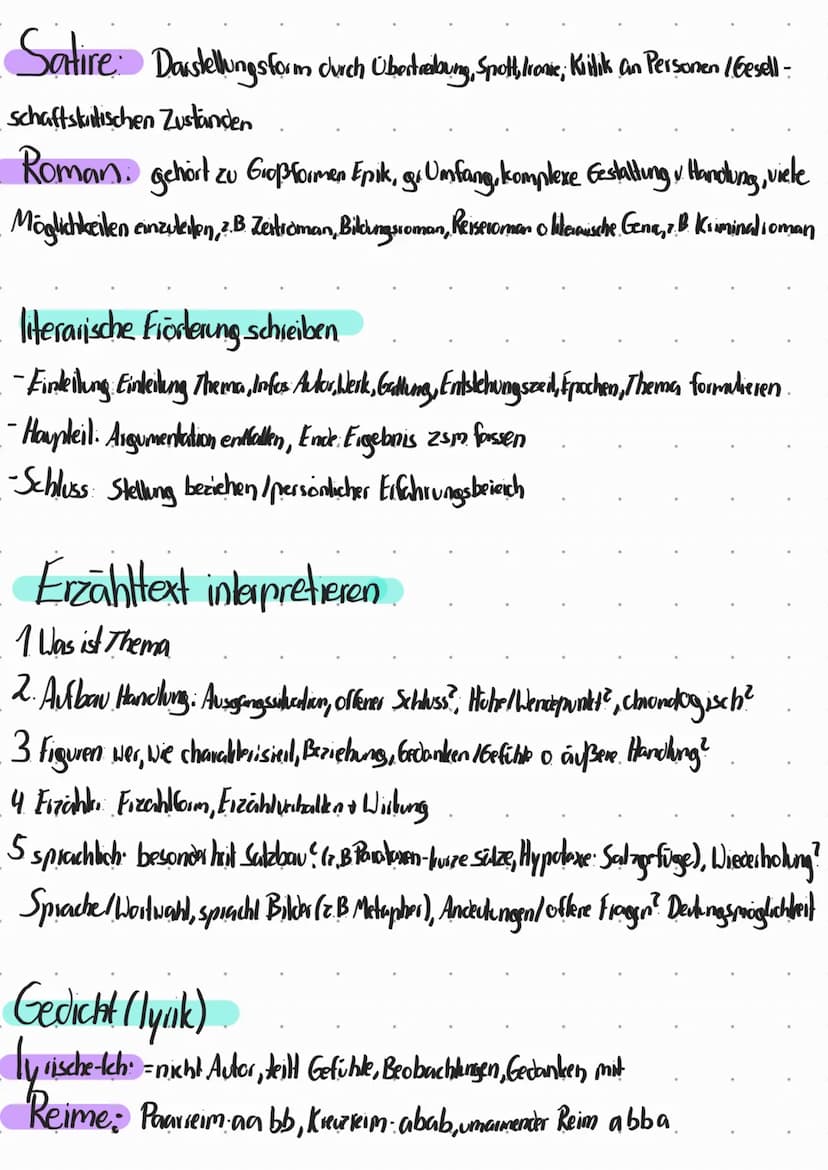 Satire: Darstellungsform durch Übertreibung, Spott, Ironie; Kritik an Personen / Gesell-
schaftskritischen Zuständen
Roman: gehört zu Großformen Epik, gr Umfang, komplexe Gestaltung v Handlung, viele
Möglichkeiten einzuteilen, z.B Zeitroman, Bildungsroman, Reiseroman o literarische Genre, z.B Kriminalroman
literarische Erörterung schreiben
- Einleitung: Einleitung Thema, Infos Autor, Werk, Gattung, Entstehungszeit, Epochen, Thema formulieren
- Haupteil: Argumentation entfalten, Ende: Ergebnis zsm fassen
- Schluss: Stellung beziehen / persönlicher Erfahrungsbereich
Erzähltext interpretieren
1 Was ist Thema
2. Aufbau Handlung: Ausgangssituation, offener Schluss?, Höhe/Wendepunkt?, chronologisch?
3 Figuren wer, wie charakterisiert, Beziehung, Gedanken / Gefühle o äußere Handlung?
4 Erzähler: Erzählform, Erzählverhalten + Wirkung
5 sprachlich: besonderheit Satzbau? (z.B Parataxen-kurze sätze, Hypotaxe: Satzgefüge), Wiederholung?
Sprache/Wortwahl, sprachl Bilder (z.B Metapher), Andeutungen/offene Fragen? Deutungsmöglichkeit
Gedicht (lyrik)
lyrische-Ich: = nicht Autor, teilt Gefühle, Beobachtungen, Gedanken mit
Reime: Paarreim-aa bb, Kreuzreim-abab, umarmender Reim abba